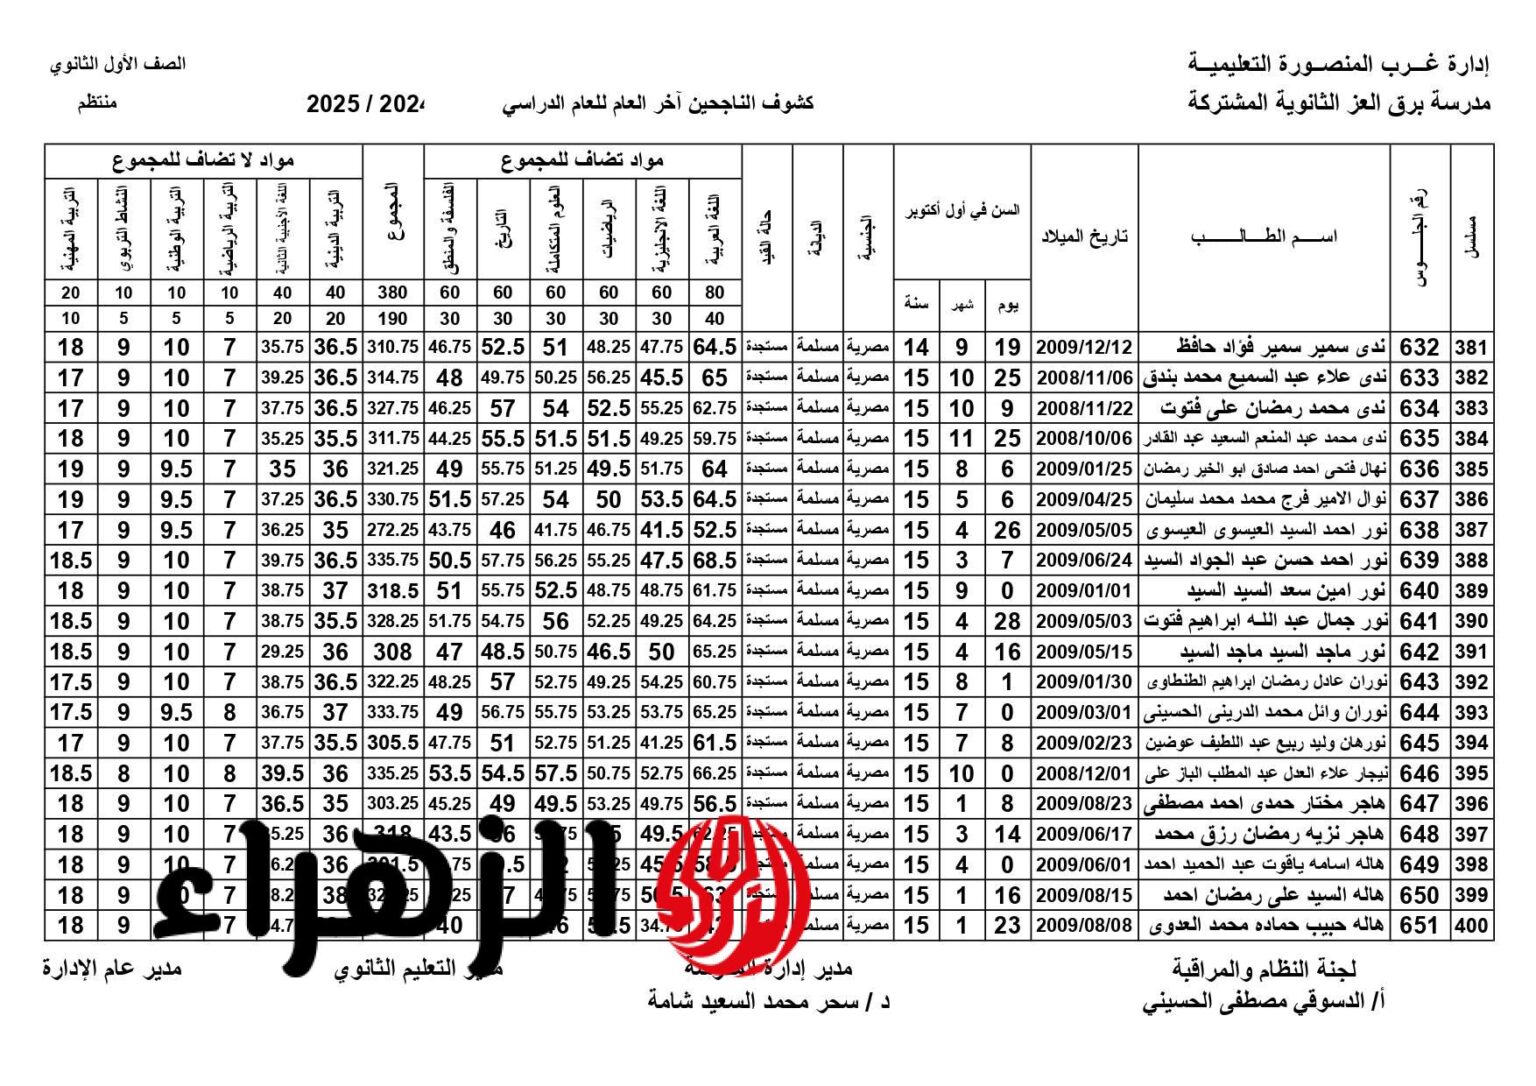 إدارة غـــرب المنصــورة التعليميــة
الصف الأول الثانوي
مدرسة برق العز الثانوية المشتركة
كشوف الناجحين آخر العام للعام الدراسي 2025 / 2024
منتظم
مسلسل رقم الجلـــوس اســـم الطـــالـــــب تاريخ الميلاد السن في أول أكتوبر الجنسية الديانة حالة القيد مواد تضاف للمجموع المجموع مواد لا تضاف للمجموع
يوم شهر سنة اللغة العربية اللغة الانجليزية الرياضيات العلوم المتكاملة التاريخ الفلسفة والمنطق التربية الدينية اللغة الأجنبية الثانية التربية الرياضية التربية الوطنية النشاط التربوي التربية المهنية
80 60 60 60 60 60 380 40 40 10 10 10 20
40 30 30 30 30 30 190 20 20 5 5 5 10
381 632 ندى سمير سمير فؤاد حافظ 2009/12/12 19 9 14 مصرية مسلمة مستجدة 64.5 47.75 48.25 51 52.5 46.75 310.75 36.5 35.75 7 10 9 18
382 633 ندى علاء عبد السميع محمد بندق 2008/11/06 25 10 15 مصرية مسلمة مستجدة 65 45.5 56.25 50.25 49.75 48 314.75 36.5 39.25 7 10 9 17
383 634 ندى محمد رمضان على فتوت 2008/11/22 9 10 15 مصرية مسلمة مستجدة 62.75 55.25 52.5 54 57 46.25 327.75 36.5 37.75 7 10 9 17
384 635 ندى محمد عبد المنعم السعيد عبد القادر 2008/10/06 25 11 15 مصرية مسلمة مستجدة 59.75 49.25 51.5 51.5 55.5 44.25 311.75 35.5 35.25 7 10 9 18
385 636 نهال فتحى احمد صادق ابو الخير رمضان 2009/01/25 6 8 15 مصرية مسلمة مستجدة 64 51.75 49.5 51.25 55.75 49 321.25 36 35 7 9.5 9 19
386 637 نوال الامير فرج محمد محمد سليمان 2009/04/25 6 5 15 مصرية مسلمة مستجدة 64.5 53.5 50 54 57.25 51.5 330.75 36.5 37.25 7 9.5 9 19
387 638 نور احمد السيد العيسوى العيسوى 2009/05/05 26 4 15 مصرية مسلمة مستجدة 52.5 41.5 46.75 41.75 46 43.75 272.25 35 36.25 7 9.5 9 17
388 639 نور احمد حسن عبد الجواد السيد 2009/06/24 7 3 15 مصرية مسلمة مستجدة 68.5 47.5 55.25 56.25 57.75 50.5 335.75 36.5 39.75 7 10 9 18.5
389 640 نور امين سعد السيد السيد 2009/01/01 0 9 15 مصرية مسلمة مستجدة 61.75 48.75 48.75 52.5 55.75 51 318.5 37 38.75 7 10 9 18
390 641 نور جمال عبد اللـه ابراهيم فتوت 2009/05/03 28 4 15 مصرية مسلمة مستجدة 64.25 49.25 52.25 56 54.75 51.75 328.25 35.5 38.75 7 10 9 18.5
391 642 نور ماجد السيد ماجد السيد 2009/05/15 16 4 15 مصرية مسلمة مستجدة 65.25 50 46.5 50.75 48.5 47 308 36 29.25 7 10 9 18.5
392 643 نوران عادل رمضان ابراهيم الطنطاوى 2009/01/30 1 8 15 مصرية مسلمة مستجدة 60.75 54.25 49.25 52.75 57 48.25 322.25 36.5 38.75 7 10 9 17.5
393 644 نوران وائل محمد الدرينى الحسينى 2009/03/01 0 7 15 مصرية مسلمة مستجدة 65.25 53.75 53.25 55.75 56.75 49 333.75 37 36.75 8 9.5 9 17.5
394 645 نورهان وليد ربيع عبد اللطيف عوضين 2009/02/23 8 7 15 مصرية مسلمة مستجدة 61.5 41.25 51.25 52.75 51 47.75 305.5 35.5 37.75 7 10 9 17
395 646 نيجار علاء العدل عبد المطلب الباز على 2008/12/01 0 10 15 مصرية مسلمة مستجدة 66.25 52.75 50.75 57.5 54.5 53.5 335.25 36 39.5 8 10 8 18.5
396 647 هاجر مختار حمدى احمد مصطفى 2009/08/23 8 1 15 مصرية مسلمة مستجدة 56.5 49.75 53.25 49.5 49 45.25 303.25 35 36.5 7 10 9 18
397 648 هاجر نزيه رمضان رزق محمد 2009/06/17 14 3 15 مصرية مسلمة 49.5 43.5 318 36 7 10 9 18
398 649 هاله اسامه ياقوت عبد الحميد احمد 2009/06/01 0 4 15 مصرية مسلمة 36 7 10 9 18
399 650 هاله السيد على رمضان احمد 2009/08/15 16 1 15 مصرية مسلمة مستجدة 63 38 7 9 18
400 651 هاله حبيب حماده محمد العدوى 2009/08/08 23 1 15 مصرية 40 7 9 18
الزهراء
لجنة النظام والمراقبة
مدير إدارة
مدير التعليم الثانوي
مدير عام الإدارة
أ/ الدسوقي مصطفى الحسيني
د / سحر محمد السعيد شامة